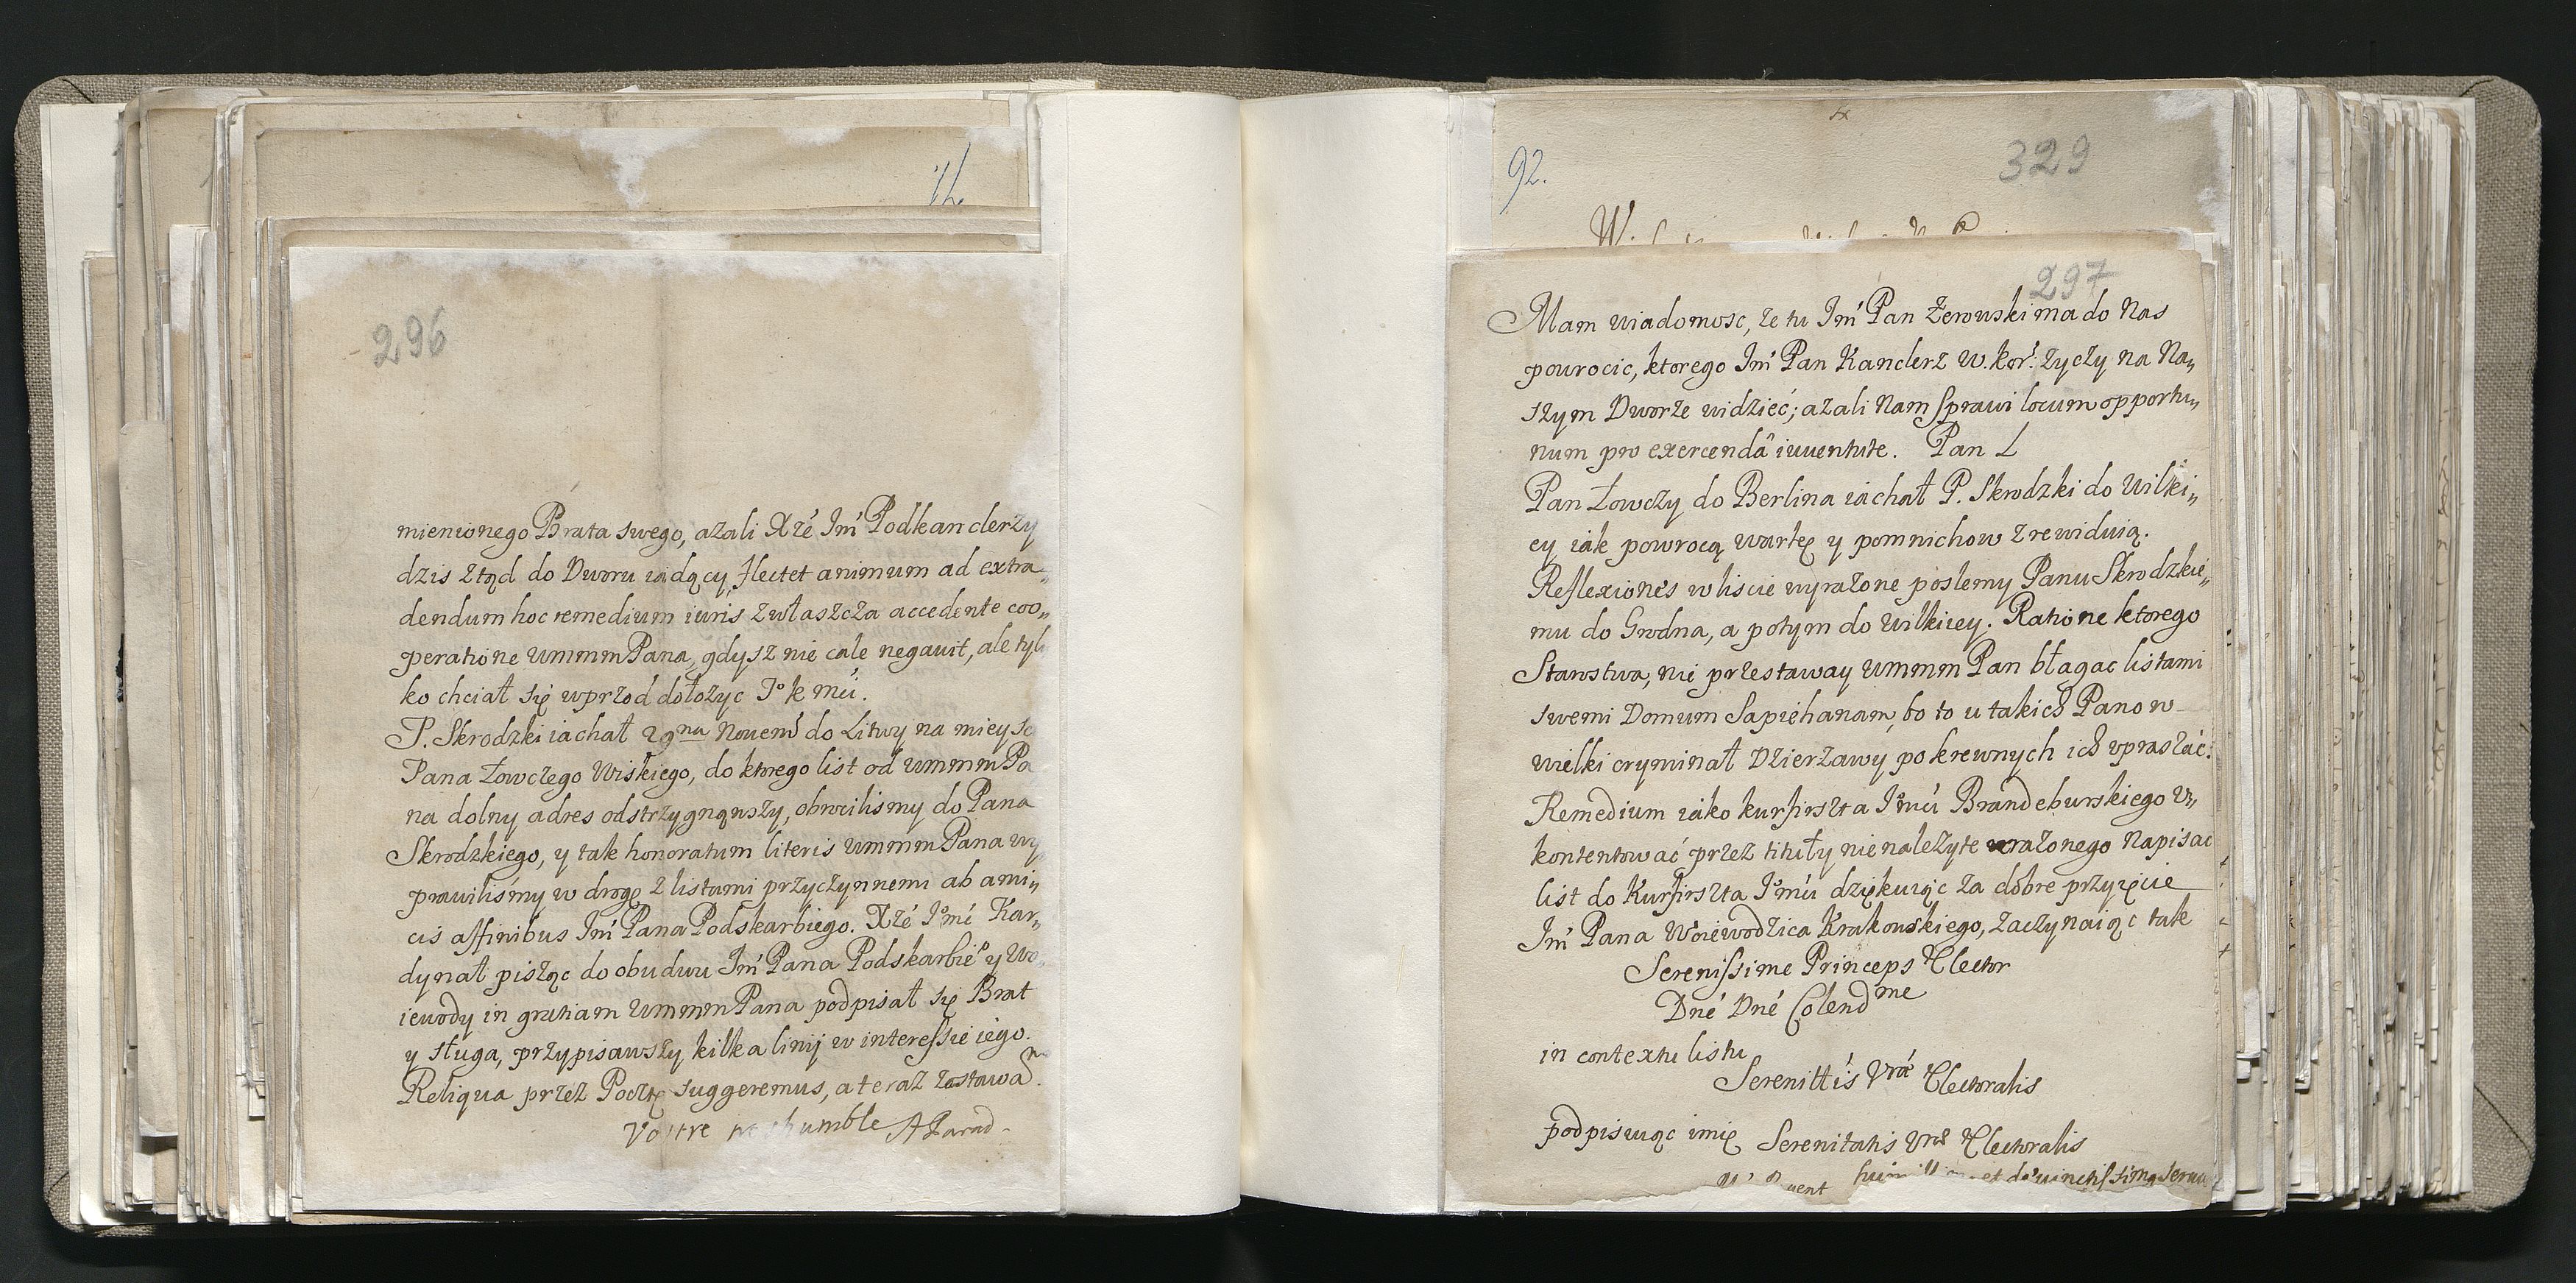 296
mienionego Brata swego, azali Xże Jm̃ Podkanclerzy
dzis ztąd do Dworu iadący, flectet animum ad extra„
dendum hoc remedium iuris zwłaszcza accedente coo„
peratione UmmmPana, gdysz nie cale negauit, ale tyl
ko chciał się wprzod dołozyc Jº k mći.
P. Skrodzki iachał 29na Nouemb do Litwy na mieysc
Pana Łowczego Wiskiego, do ktorego list od UmmmPa
na dolny adres odstrzygnąwszy, obrocilismy do Pana
Skrodzkiego, y tak honoratum literis UmmmPana wy
prawiliśmy w drogę z listami przyczynnemi ab ami„
cis affinibus Jm̃ Pana Podskarbiego. Xże Jºmć Kar„
dynał pisząc do obudwu Jm̃ Pana Podskarbiegº y Wo„
iewody in gratiam UmmmPana podpisał się Brat
y sługa, przypisawszy kilka linij w interessie iego.
Reliqua przez Pocztę suggeremus, a teraz zostawam.
Vostre humble AParad-
71.
92.
329
297
Mam wiadomosc, że tu Jm̃ Pan Żerowski ma do Nas
powrocic, ktorego Jm̃ Pan Kanclerz W. kor: życzy na Na„
szym Dworze widzieć; azali Nam sprawi locum opportu„
num pro exercendâ iuuentute. Pan L
Pan Łowczy do Berlina iachał P. Skrodzki do Wilki„
ey iak powrocą wartę y pomnichow zrewiduią.
Reflexiones w liscie wyrażone poslemy Panu Skrodzkie„
mu do Grodna, a potym do Wilkiiey. Ratione ktorego
Starostwa, nie przestaway Ummm Pan błagac listami
swemi Domum Sapiehanam, bo to u takich Panow
wielki cryminał Dzierzawy pokrewnych ich upraszać.
Remedium iako kurfirszta Jºmći Brandeburskiego U„
kontentować przez tituły nienależyte urażonego napisac
list do Kurfirszta Jºmći dziękuiąc za dobre przyięcie
Jm̃ Pana Woiewodzica Krakowskiego, zaczynaiąc tak
Serenissime Princeps Elector
Dnè Dnè Colendme
in contextu listu
Serenittis Vrã Electoralis
podpisuiąc imię Serenitatis Vrae Electoralis
et deuinctissimq seruq